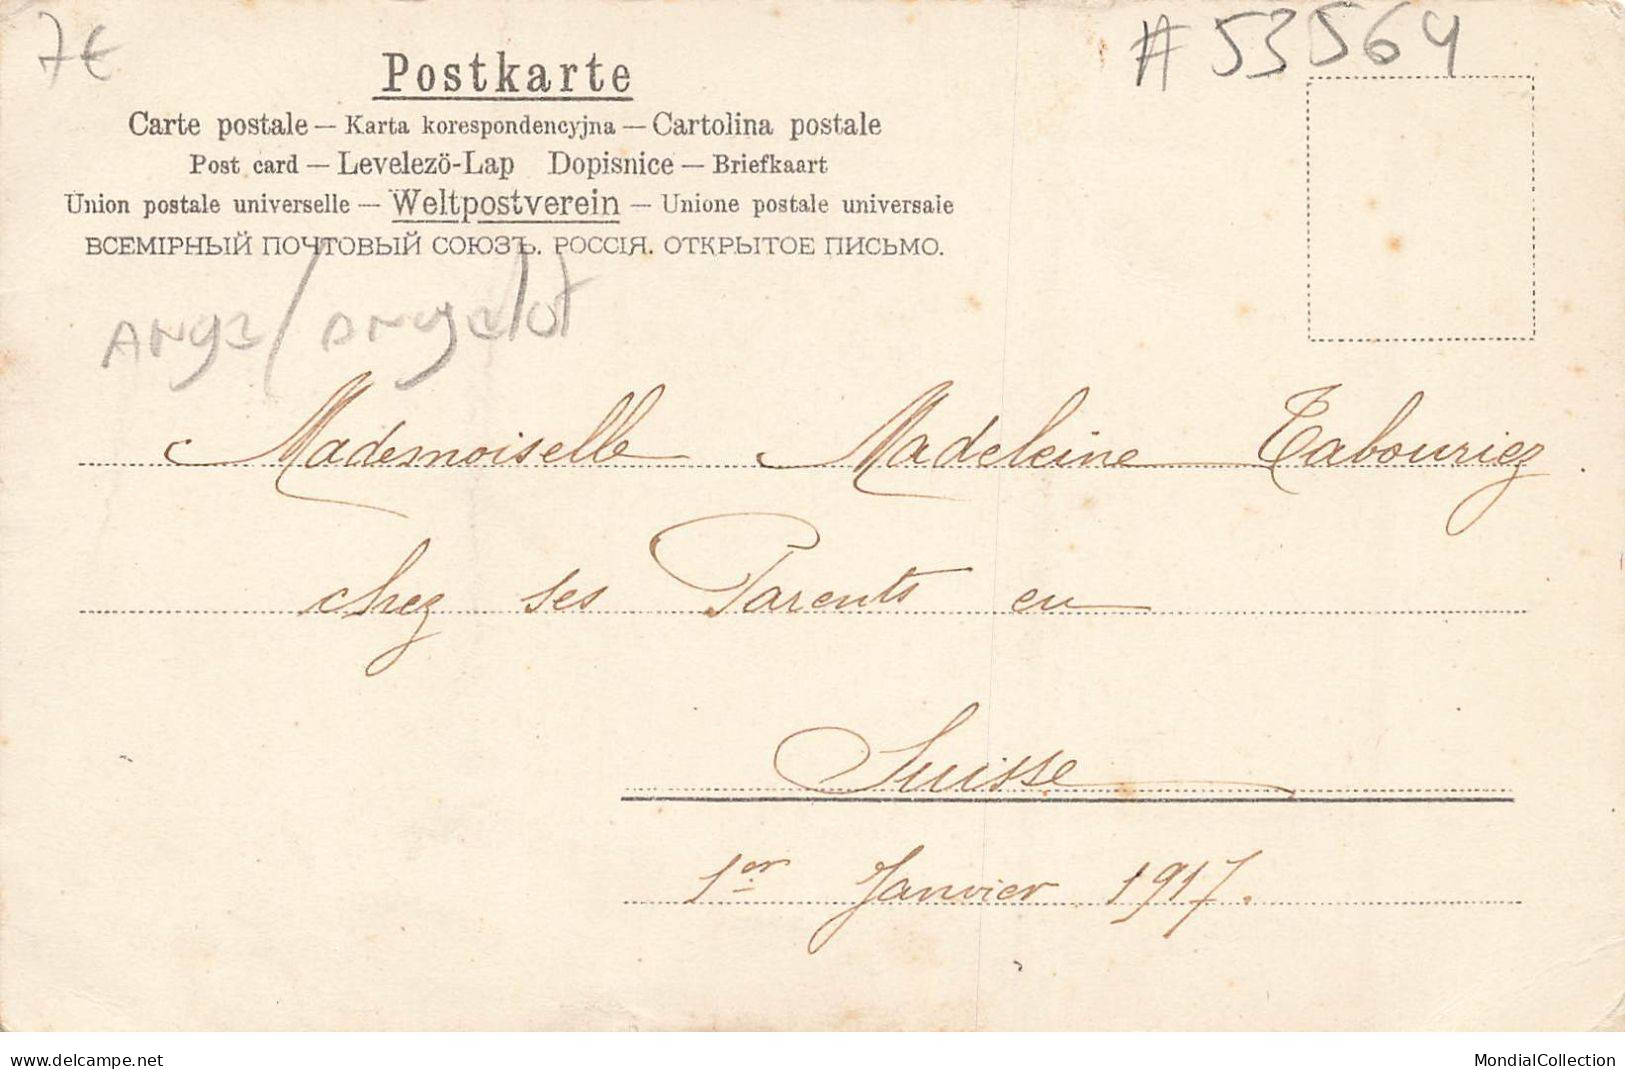 7€
#53564
Postkarte
Carte postale — Karta korespondencyjna — Cartolina postale
Post card — Levelezö-Lap Dopisnice — Briefkaart
Union postale universelle — Weltpostverein — Unione postale universale
ВСЕМІРНЫЙ ПОЧТОВЫЙ СОЮЗЪ. РОССІЯ. ОТКРЫТОЕ ПИСЬМО.
Ange/angelot
Mademoiselle Madeleine Tabouriez.
chez ses Parents en
Suisse
1er Janvier 1917.
www.delcampe.net
MondialCollection